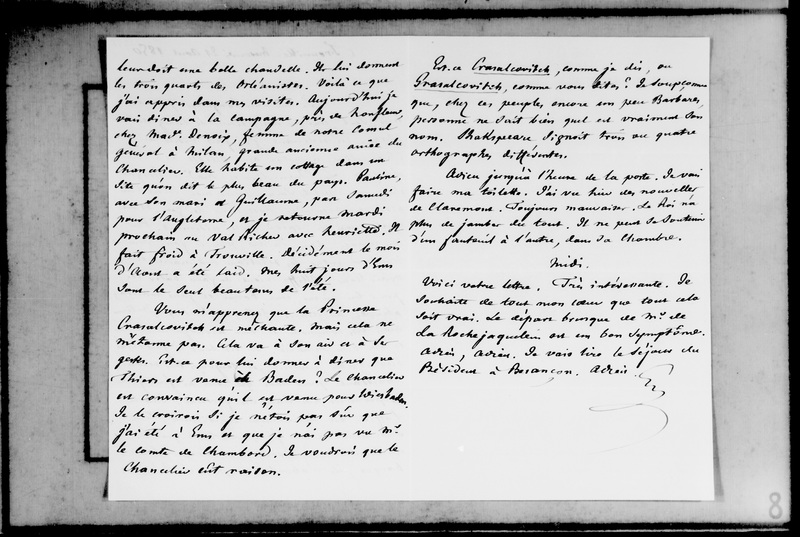 leur doit une belle chandelle. Ils lui donnent
les trois quarts des Orléanistes. Voilà ce que
j'ai appris dans mes visites. Aujourd'hui je
vais dîner à la campagne, près de honfleur,
chez Made. Denoix, femme de notre Consul
général à Milan, grande ancienne amie du
Chancelier. Elle habite un cottage dans un
site qu'on dit le plus beau du pays. Pauline,
avec son mari et Guillaume, part Samedi
pour l'Angleterre, et je retourne Mardi
prochain au Val Richer avec henriette. Il
fait froid à Trouville. Décidément le mois
d'Aout a été laid. Mes huit jours d'Ems
sont le seul beau tems de l'été.
Vous m'apprenez que la Princesse
Crasalcovitch est méchante. Mais cela ne
m'étonne pas. Cela va à son air et à ses
gestes. Est-ce pour lui donner à dîner que
Thiers est venu à Baden ? Le Chancelier
est convaincu qu'il est venu pour Wiesbaden.
Je le croirois si je n'étois pas sûr que
j'ai été à Ems et que je n'ai pas vu Mr.
le comte de Chambord. Je voudrois que le
Chancelier eût raison.
Est-ce Crasalcovitch, comme je dis, ou
Grasalcovitch, comme vous dites ? Je soupçonne
que, chez ces peuples encore un peu Barbares,
personne ne sait bien quel est vraiment son
nom. Shakspeare signoit trois ou quatre
orthographes différentes.
Adieu jusqu'à l'heure de la poste. Je vais
faire ma toilette. J'ai vu hier des nouvelles
de Claremont. Toujours mauvaises. Le Roi n'a
plus de jambes du tout. Il ne peut se soutenir
d'un fauteuil à l'autre, dans sa chambre.
Midi.
Voici votre lettre. Très intéressante. Je
souhaite de tout mon cœur que tout cela
soit vrai. Le départ brusque de Mr. de
La Rochejaquelein est un bon symptôme.
Adieu, Adieu. Je vais lire le séjour du
Président à Besançon. Adieu.
8